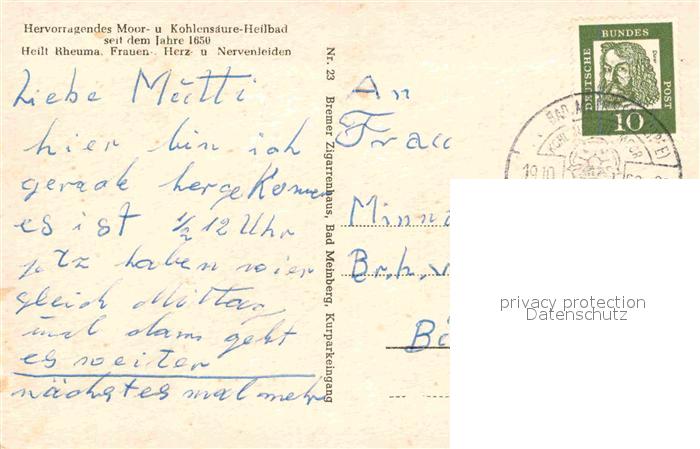 Hervorragendes Moor- u Kohlensäure-Heilbad
seit dem Jahre 1650
Heilt Rheuma, Frauen-, Herz- u Nervenleiden
Liebe Mutti
hier bin ich
gerade hergekommen
es ist 1/2 12 Uhr
jetz haben wier
gleich Mittag
und dann geht
es weiter
nächstes mal mehr
Nr. 23 Bremer Zigarrenhaus, Bad Meinberg, Kurparkeingang
An
Frau
Minna
DEUTSCHE BUNDES POST
10
privacy protection
Datenschutz